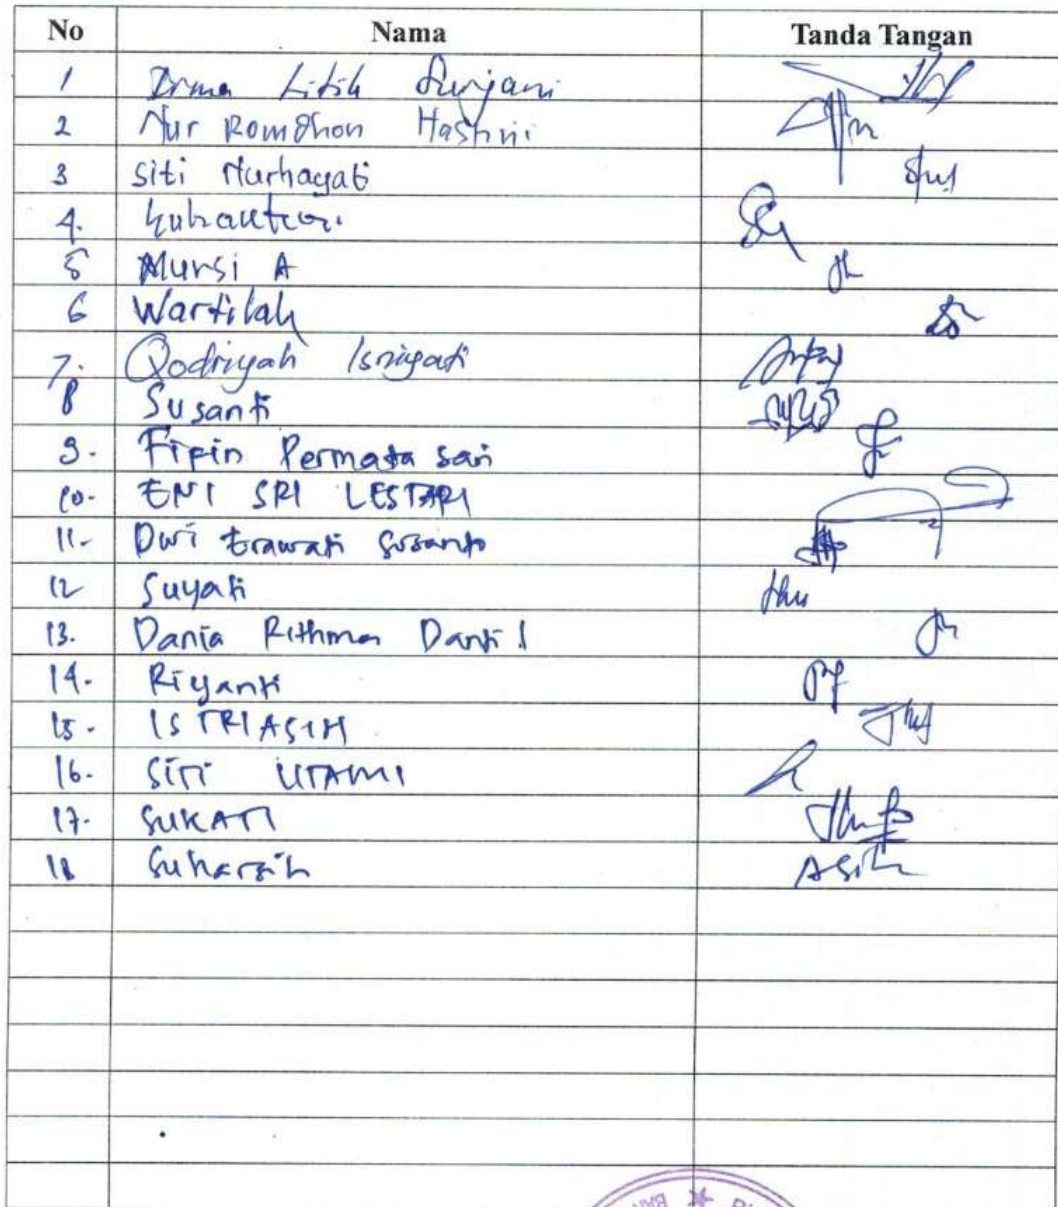 No Nama Tanda Tangan
1 Litik
2 Nur Romdhon Hastini
3 Siti Nurhayati
4.
5 Mursi A
6 Wartilah
7. Qodriyah Isniyati
8 Susanti
9. Fipin Permata Sari
10. ENI SRI LESTARI
11. Dwi Erawati Susanto
12 Suyati
13. Dania Rithma Danti
14. Riyanti
15. ISTRIASIH
16. SITI UTAMI
17. SUKATI
18 Suharsih Asih